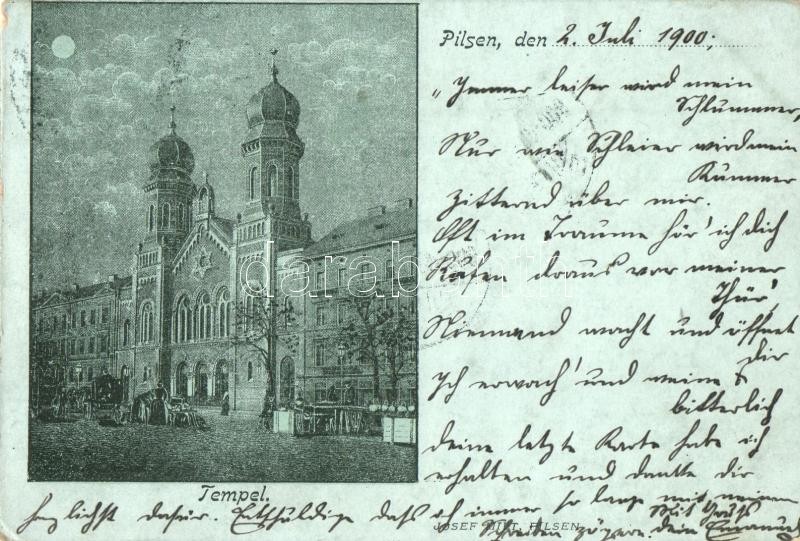 Pilsen, den 2. Juli 1900;
"Immer leiser wird mein
Schlummer,
Nur wie Schleier wird mein
Kummer
Zitternd über mir.
Oft im Traume hör' ich dich
Rufen draus vor meiner
Thür,
Niemand wacht und öffnet
dir
Ich erwach' und weine
bitterlich
deine letzte Karte habe ich
erhalten und dankte dir
herzlichst dafür. Entschuldige dass ich immer so lange mit meinem
Schreiben zögere. Mit Gruß
dein Emanuel
Tempel.
JOSEF PILSEN
darabanth